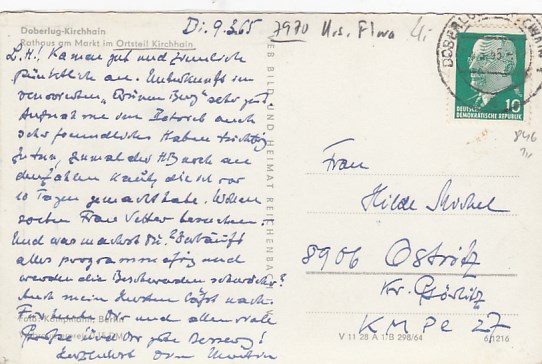 Doberlug-Kirchhain
Rathaus am Markt im Ortsteil Kirchhain
Di. 9.3.65
7970 Urs. Flora
L. H.! Kamen gut und ziemlich
pünktlich an. Unterkunft im
sehr gut.
Aufnahme im Betrieb auch
sehr freundlich. Haben tüchtig
zu tun, zumal der noch an
den die ich vor
10 Tagen gemacht habe. Wollen
Frau Vetter besuchen.
Und was machst Du? Verläuft
alles programmäßig und
werden die Beschwerden schwächer?
Auch mein läßt nach.
Für heute Dir und allen viele
Grüße und Dir gute Besserung!
Herzlichst Dein
Foto: Kampmann, Berlin
VEB BILD UND HEIMAT REICHENBACH
DOBERLUG
10
DEUTSCHE
DEMOKRATISCHE REPUBLIK
846
Frau
Hilde Michel
8906 Ostritz
Kr. Görlitz
KMPe 27
V 11 28 A 1 B 298/64
6/1216